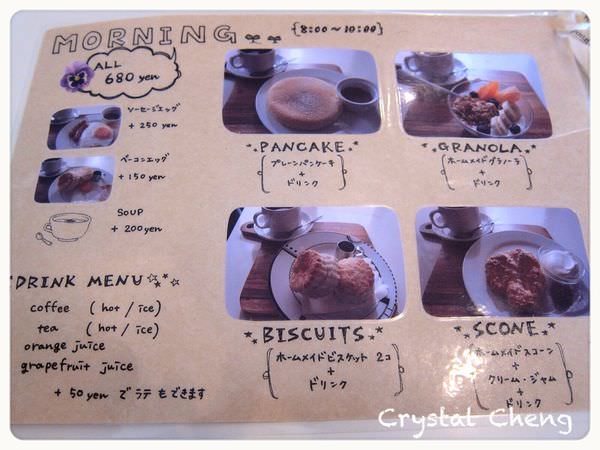 MORNING {8:00~10:00}
ALL
680 yen
ソーセージエッグ
+ 250 yen
ベーコンエッグ
+ 150 yen
SOUP
+ 200 yen
PANCAKE
プレーンパンケーキ
+
ドリンク
GRANOLA
ホームメイドグラノーラ
+
ドリンク
BISCUITS
ホームメイドビスケット 2コ
+
ドリンク
SCONE
ホームメイドスコーン
+
クリーム・ジャム
+
ドリンク
DRINK MENU
coffee (hot / ice)
tea (hot / ice)
orange juice
grapefruit juice
+ 50 yen で ラテ もできます
Crystal Cheng